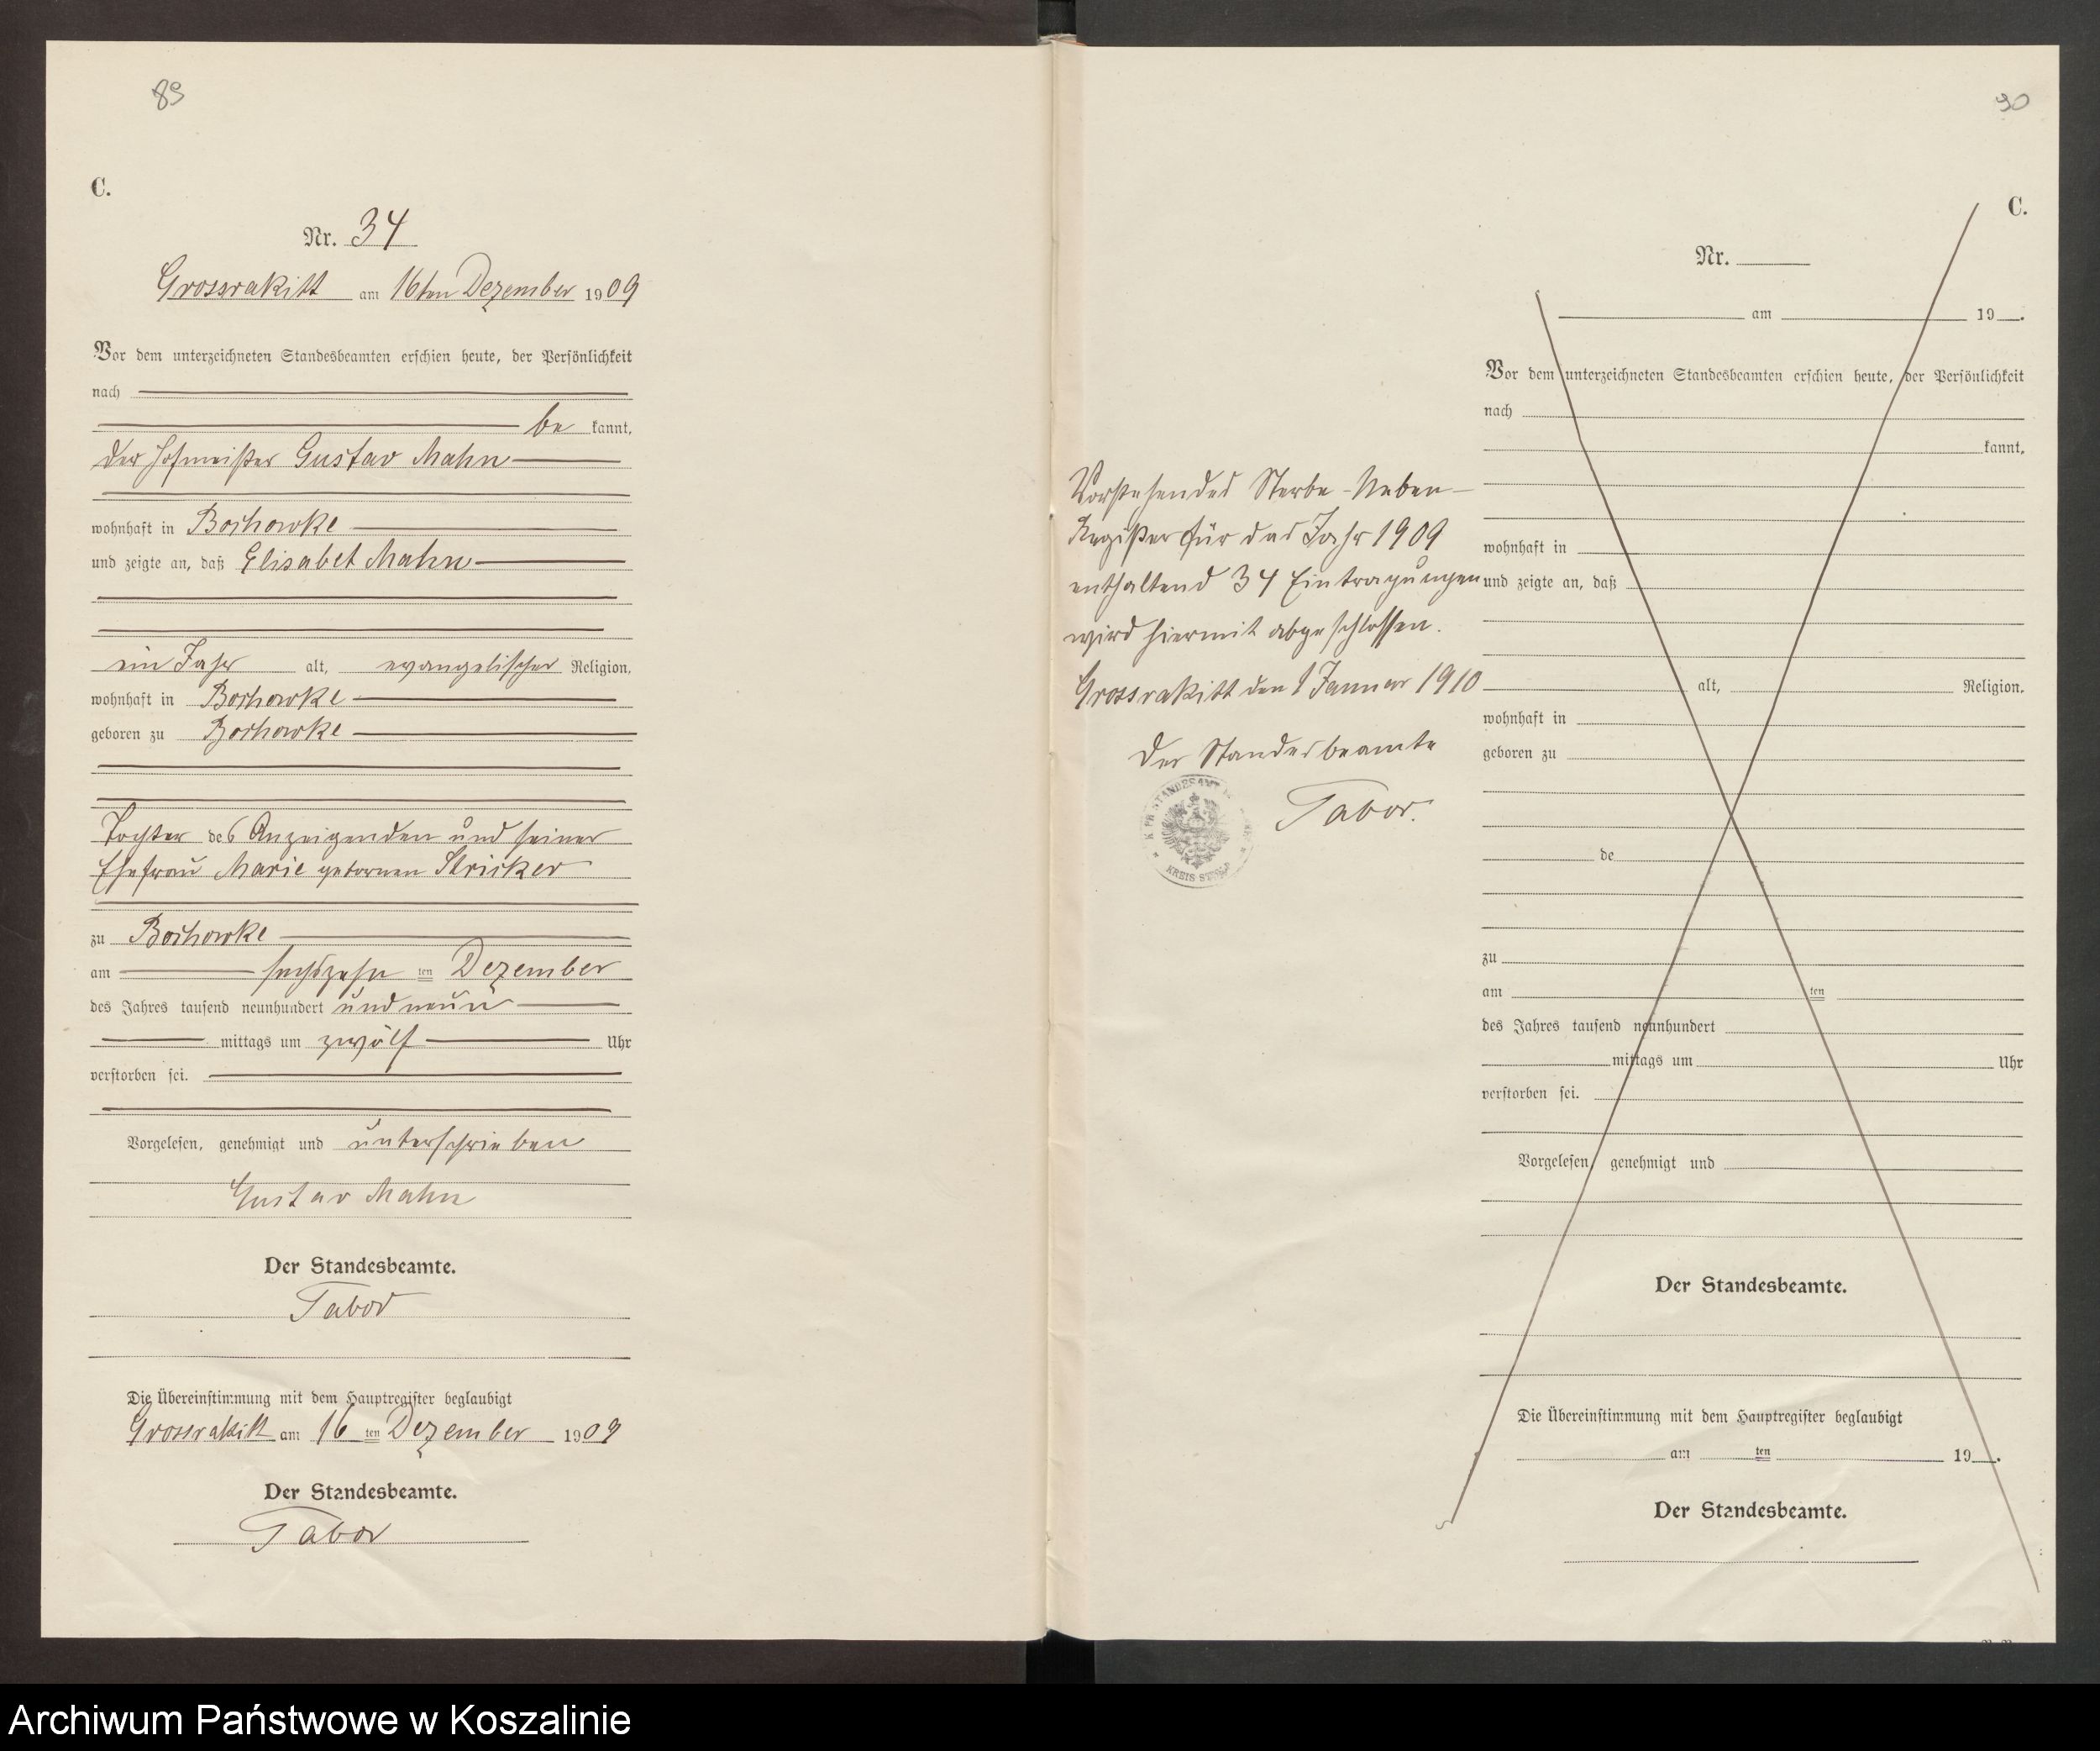 89
C.
Nr. 34
Grossrakitt am 16ten Dezember 1909
Vor dem unterzeichneten Standesbeamten erschien heute, der Persönlichkeit
nach
be kannt,
der Hofmeister Gustav Mahn
wohnhaft in Bochowke
und zeigte an, daß Elisabet Mahn
ein Jahr alt, evangelischer Religion,
wohnhaft in Bochowke
geboren zu Bochowke
Tochter des Anzeigenden und seiner
Ehefrau Marie gebornen Stricker
zu Bochowke
am sechszehn ten Dezember
des Jahres tausend neunhundert und neun
mittags um zwölf Uhr
verstorben sei.
Vorgelesen, genehmigt und unterschrieben
Gustav Mahn
Der Standesbeamte.
Tabor
Die Übereinstimmung mit dem Hauptregister beglaubigt
Grossrakitt am 16 ten Dezember 1909
Der Standesbeamte.
Tabor
90
Vorstehendes Sterbe-Neben-
Register für das Jahr 1909
enthaltend 34 Eintragungen
wird hiermit abgeschlossen.
Grossrakitt den 1 Januar 1910
Der Standesbeamte
Tabor.
STANDESAMT
KREIS STOLP
C.
Nr.
am 19 .
Vor dem unterzeichneten Standesbeamten erschien heute, der Persönlichkeit
nach
kannt,
wohnhaft in
und zeigte an, daß
alt, Religion,
wohnhaft in
geboren zu
de
zu
am ten
des Jahres tausend neunhundert
mittags um Uhr
verstorben sei.
Vorgelesen, genehmigt und
Der Standesbeamte.
Die Übereinstimmung mit dem Hauptregister beglaubigt
am ten 19 .
Der Standesbeamte.
Archiwum Państwowe w Koszalinie